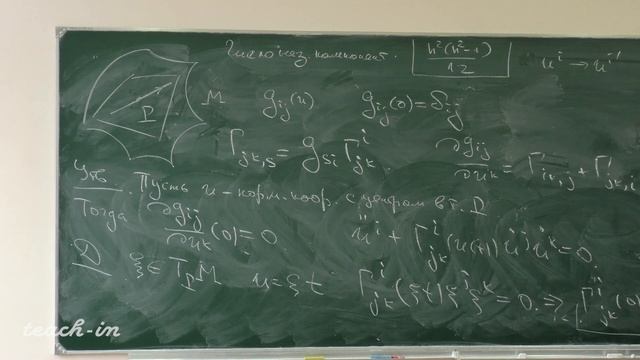 Число нез. компонент. n²(n²-1)/12 uⁱ → uⁱ'
P M g_ij(u) g_ij(0) = δ_ij
Γ_jk,s = g_si Γ^i_jk ∂g_ij/∂u^k = Γ_ik,j + Γ_jk,i
Утв. Пусть u - норм. коор. с центром в т. P.
Тогда ∂g_ij/∂u^k (0) = 0. ü^i + Γ^i_jk(u(t)) u̇^j u̇^k = 0
Д ξ ∈ T_P M u = ξt Γ^i_jk(ξt) ξ^j ξ^k = 0 ⇒ Γ^i_jk(0)
teach-in